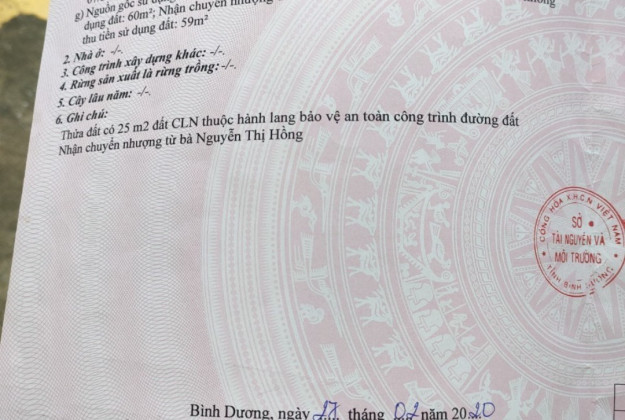 g) Nguồn gốc sử dụng
dụng đất: 60m²; Nhận chuyển
thu tiền sử dụng đất: 59m²
2. Nhà ở: -/-.
3. Công trình xây dựng khác: -/-.
4. Rừng sản xuất là rừng trồng: -/-.
5. Cây lâu năm: -/-.
6. Ghi chú:
Thửa đất có 25 m2 đất CLN thuộc hành lang bảo vệ an toàn công trình đường đất
Nhận chuyển nhượng từ bà Nguyễn Thị Hồng
CỘNG HÒA X.H.C.N VIỆT NAM
SỞ
TÀI NGUYÊN VÀ
MÔI TRƯỜNG
TỈNH BÌNH DƯƠNG
Bình Dương, ngày 17 tháng 02 năm 2020